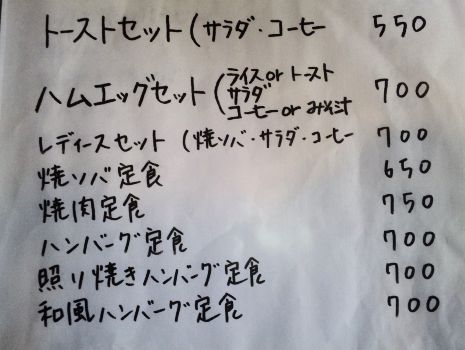 トーストセット(サラダ・コーヒー 550
ハムエッグセット(ライス or トースト
サラダ
コーヒー or みそ汁 700
レディースセット (焼ソバ・サラダ・コーヒー 700
焼ソバ定食 650
焼肉定食 750
ハンバーグ定食 700
照り焼きハンバーグ定食 700
和風ハンバーグ定食 700